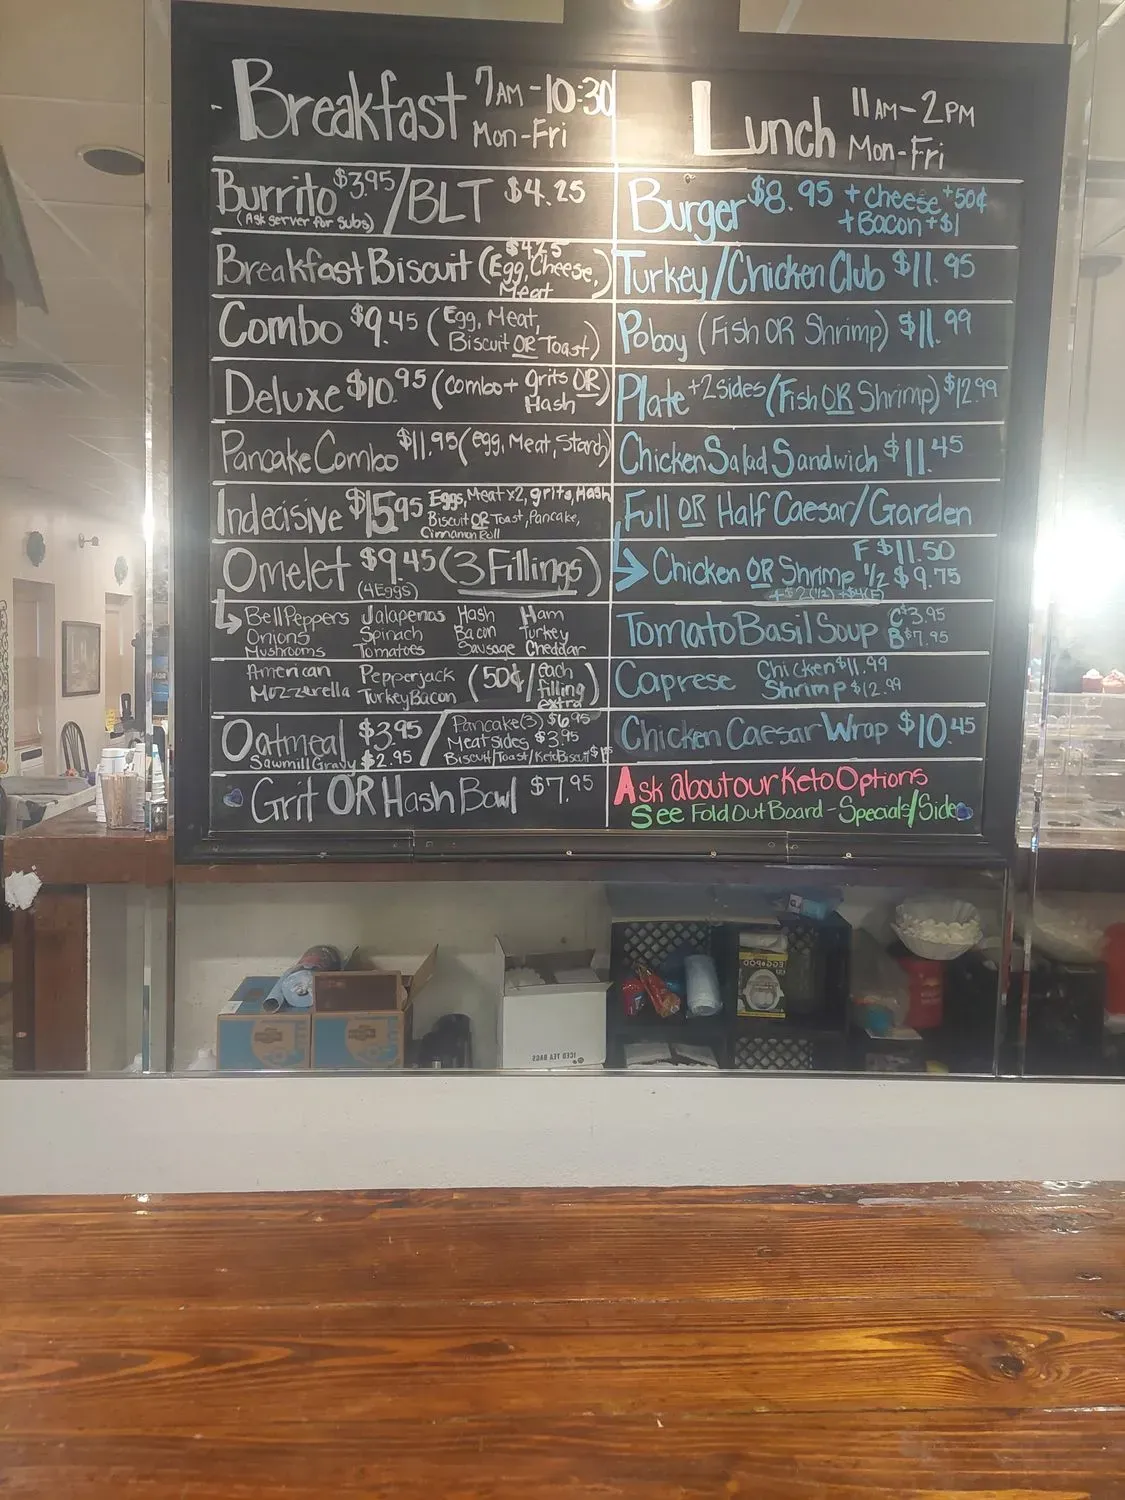 Breakfast 7AM-10:30
Mon-Fri
Burrito $3.95/BLT $4.25
(Ask server for subs)
Breakfast Biscuit $4.25 (Egg, Cheese,
Meat)
Combo $9.45 (Egg, Meat,
Biscuit OR Toast)
Deluxe $10.95 (combo + grits OR
Hash)
Pancake Combo $11.95 (egg, Meat, Starch)
Indecisive $15.95 Eggs, Meat x2, grits, Hash
Biscuit OR Toast, Pancake,
Cinnamon Roll
Omelet $9.45 (3 Fillings)
(4 Eggs)
Bell Peppers Jalapenos Hash Ham
Onions Spinach Bacon Turkey
Mushrooms Tomatoes Sausage Cheddar
American Pepperjack (50¢/each
Mozzarella Turkey Bacon filling
extra)
Oatmeal $3.95 / Pancake (3) $6.95
Meat sides $3.95
Sawmill Gravy $2.95 Biscuit/Toast/Keto Biscuit
Grit OR Hash Bowl $7.95
Lunch 11AM-2PM
Mon-Fri
Burger $8.95 + cheese +50¢
+ Bacon +$1
Turkey/Chicken Club $11.95
Poboy (Fish OR Shrimp) $11.99
Plate +2 sides (Fish OR Shrimp) $12.99
Chicken Salad Sandwich $11.45
Full OR Half Caesar/Garden
F $11.50
Chicken OR Shrimp 1/2 $9.75
+$2(1/2) +$4(F)
Tomato Basil Soup C $3.95
B $7.95
Caprese Chicken $11.99
Shrimp $12.99
Chicken Caesar Wrap $10.45
Ask about our Keto Options
See Fold Out Board - Specials/Sides
EGG POD
ICED TEA BAGS